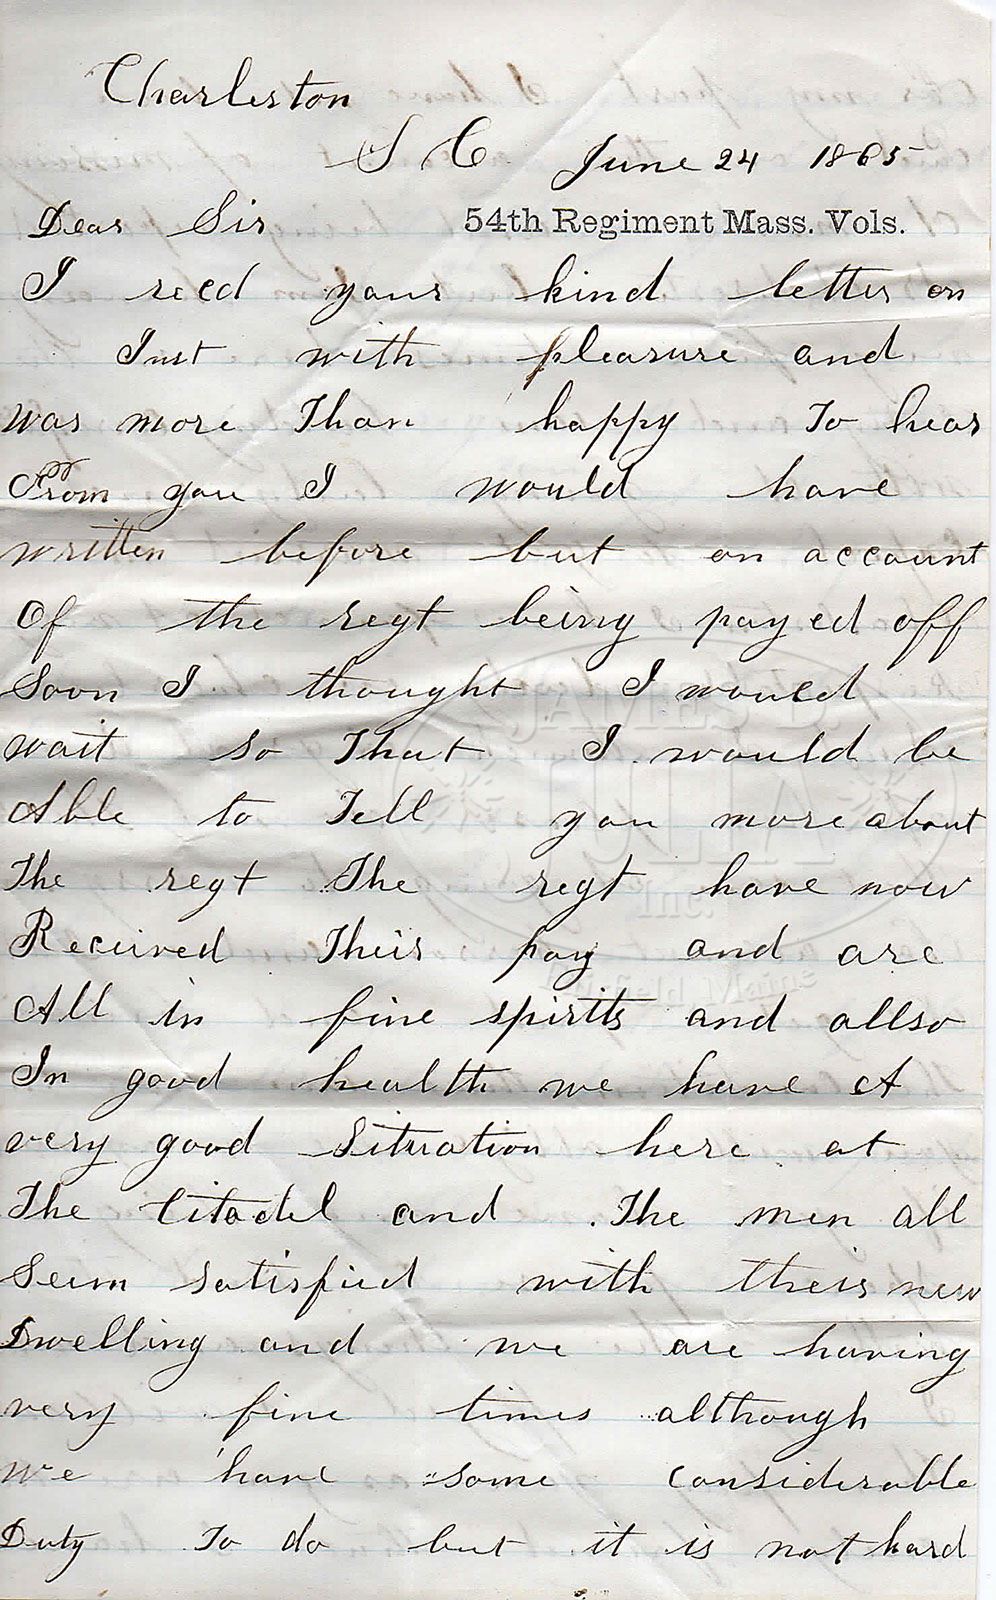 Charleston
S C June 24 1865
Dear Sir 54th Regiment Mass. Vols.
I recd your kind letter on
Inst with pleasure and
was more Than happy To hear
From you I would have
written before but on account
Of the regt being payed off
Soon I thought I would
wait so That I would be
Able to Tell you more about
The regt The regt have now
Received Their pay and are
All in fine spirits and allso
In good health we have A
very good Situation here at
The Citadel and The men all
Seem satisfied with their new
Dwelling and we are having
very fine times although
We have some considerable
Duty To do but it is not hard
JAMES D.
JULIA
Inc.
Fairfield Maine